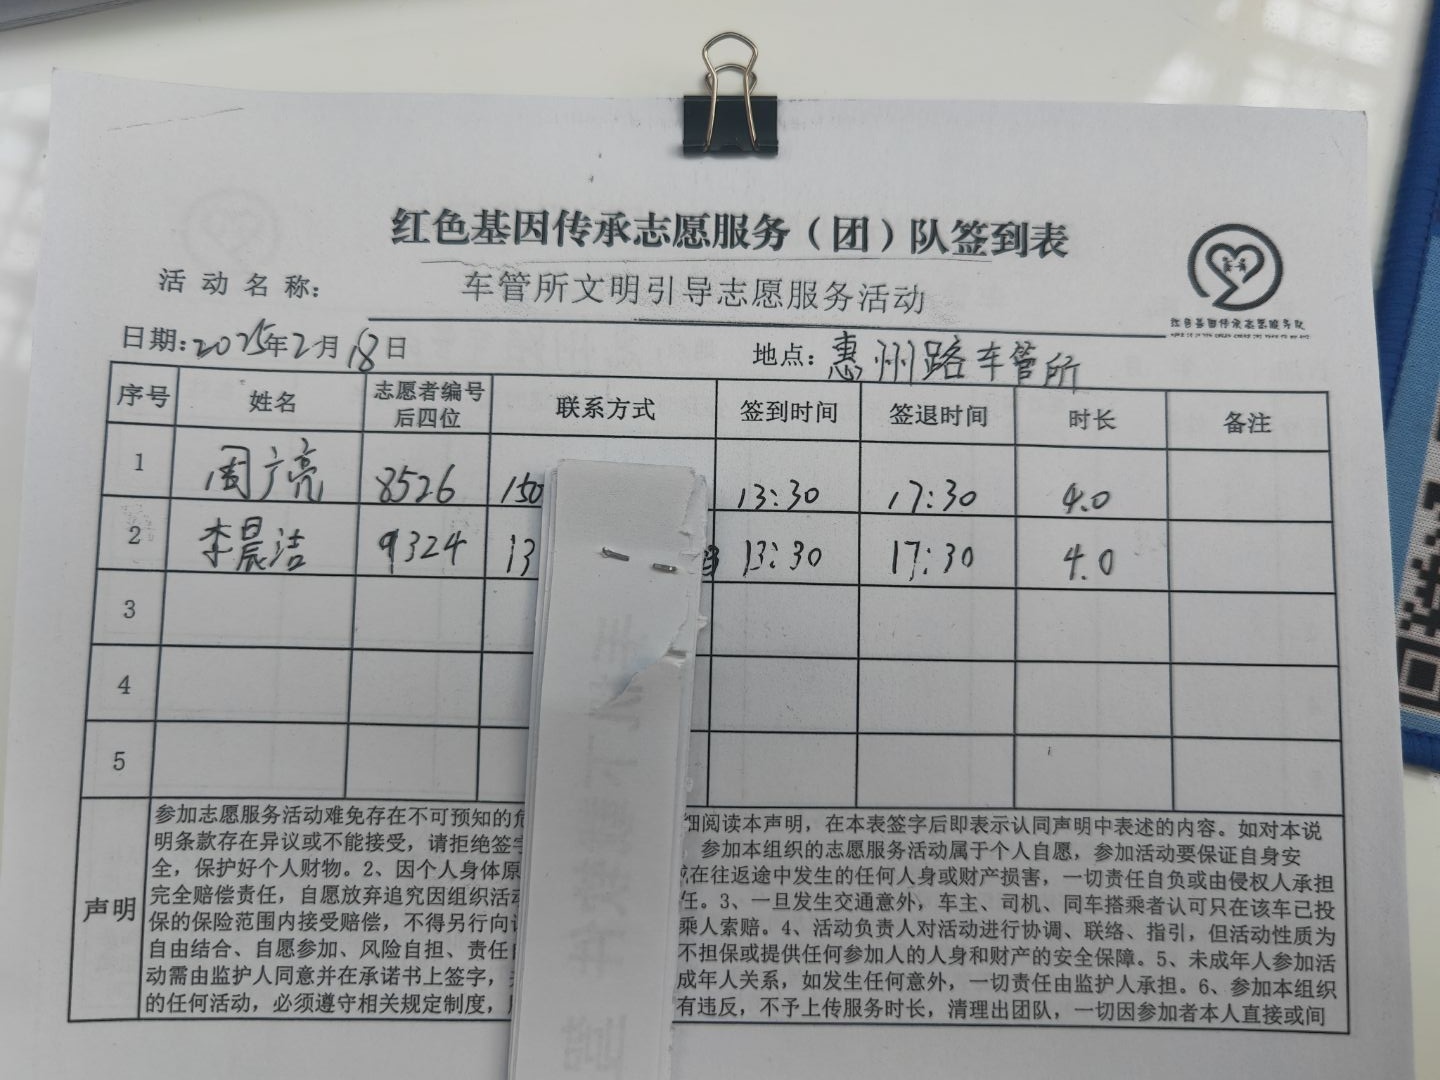 红色基因传承志愿服务（团）队签到表
活动名称： 车管所文明引导志愿服务活动
红色基因传承志愿服务队
日期：2025年2月18日 地点：惠州路车管所
序号 姓名 志愿者编号后四位 联系方式 签到时间 签退时间 时长 备注
1 周广亮 8526 150 13:30 17:30 4.0
2 李晨洁 9324 13 13:30 17:30 4.0
3
4
5
声明
参加志愿服务活动难免存在不可预知的 细阅读本声明，在本表签字后即表示认同声明中表述的内容。如对本说
明条款存在异议或不能接受，请拒绝签字 参加本组织的志愿服务活动属于个人自愿，参加活动要保证自身安
全，保护好个人财物。2、因个人身体原 在往返途中发生的任何人身或财产损害，一切责任自负或由侵权人承担
完全赔偿责任，自愿放弃追究因组织活动 任。3、一旦发生交通意外，车主、司机、同车搭乘者认可只在该车已投
保的保险范围内接受赔偿，不得另行向 乘人索赔。4、活动负责人对活动进行协调、联络、指引，但活动性质为
自由结合、自愿参加、风险自担、责任 不担保或提供任何参加人的人身和财产的安全保障。5、未成年人参加活
动需由监护人同意并在承诺书上签字， 成年人关系，如发生任何意外，一切责任由监护人承担。6、参加本组织
的任何活动，必须遵守相关规定制度， 有违反，不予上传服务时长，清理出团队，一切因参加者本人直接或间